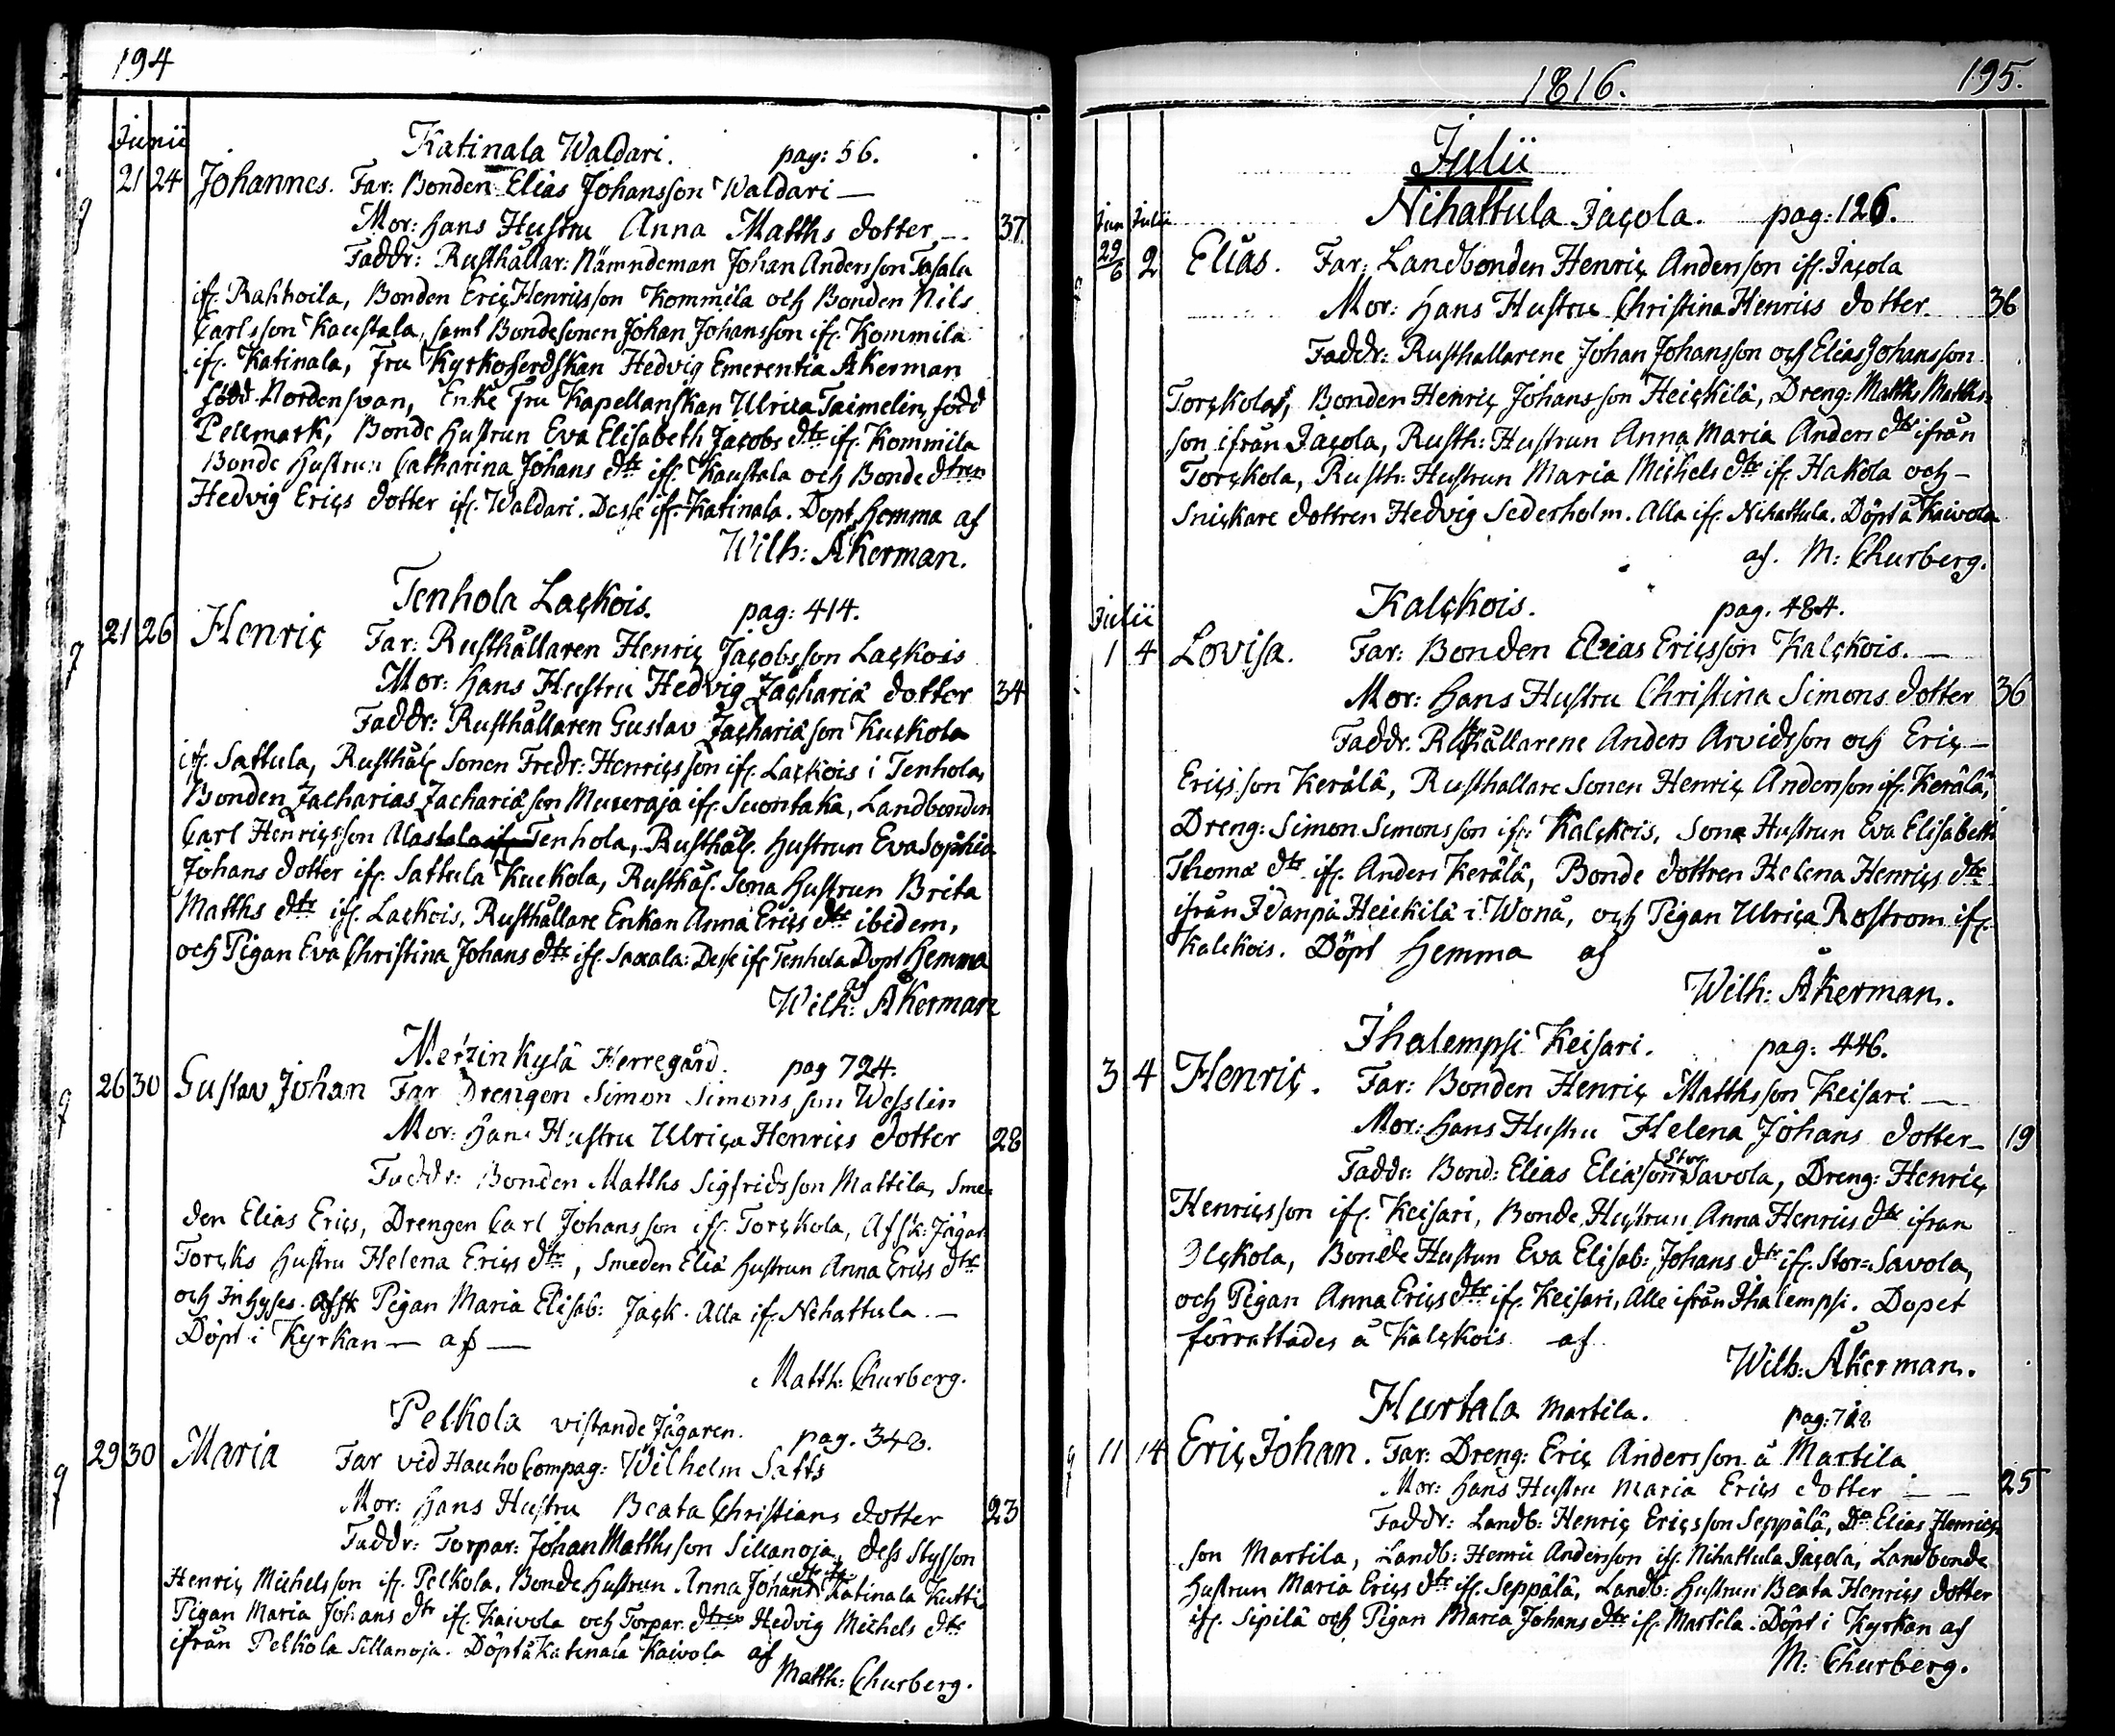 194
Junii
Katinala Waldari. pag: 56.
21 24 Johannes. Far: Bonden Elias Johansson Waldari —
Mor: hans Hustru Anna Matths dotter — 37
Faddr: Rusthållar: Nämndeman Johan Andersson Tasala
ifr. Rahhoila, Bonden Eric Henricsson Kommila och Bonden Nils
Carlsson Kaustala, samt Bondesonen Johan Johansson ifr. Kommila
ifr. Katinala, Fru Kyrkoherdskan Hedvig Emerentia Åkerman
född Nordensvan, Enke Fru Kapellanskan Ulrica Taimelin, född
Pellmark, Bonde hustrun Eva Elisabeth Jacobs dtr ifr. Kommila
Bonde hustrun Catharina Johans dtr ifr. Kaustala och Bonde dtren
Hedvig Erics dotter ifr. Waldari. Desse ifr. Katinala. Döpt hemma af
Wilh: Åkerman.
Tenhola Lackois. pag: 414.
21 26 Henric Far: Rusthållaren Henric Jacobsson Lackois
Mor: hans Hustru Hedvig Zachariæ dotter 34
Faddr: Rusthållaren Gustav Zachariæson Kuckola
ifr. Sattula, Rusthåll. Sonen Fredr: Henricsson ifr. Lackois i Tenhola,
Bonden Zacharias Zachariæson Muuraja ifr. Suontaka, Landbonden
Carl Henricsson Alastalo Tenhola, Rusthåll. hustrun Eva Sophia
Johans dotter ifr. Sattula Kuckola, Rusthåll. Sona hustrun Brita
Matths dtr ifr. Lackois, Rusthållare Enkan Anna Erics dtr ibidem,
och Pigan Eva Christina Johans dtr ifr. Saxala: Desse ifr Tenhola Döpt hemma
af
Wilh: Åkerman
Merzinkylä Herregård. pag 724.
26 30 Gustav Johan Far Drengen Simon Simonsson Wesslin
Mor: hans Hustru Ulrica Henrics dotter 28
Faddr: Bonden Matths Sigfridsson Mattila, Sme=
den Elias Erics, Drengen Carl Johansson ifr. Torckola, Afsk: Jägar
Torcks hustru Helena Erics dtr, Smeden Eliæ hustrun Anna Erics dtr
och Inhyses. Afsk Pigan Maria Elisab: Jack. Alla ifr. Nihattula. —
Döpt i Kyrkan — af —
Matth: Churberg.
Pelkola vistande Jägaren. pag. 348.
29 30 Maria Far vid Hauho Compag: Wilhelm Satts
Mor: hans Hustru Beata Christians dotter 23
Faddr: Torpar: Johan Matthsson Sillanoja, dess Styfson
Henric Michelsson ifr. Pelkola, Bonde hustrun Anna Johans dtr ifr. Katinala Kutti
Pigan Maria Johans dtr ifr. Kaivola och Torpar. dtren Hedvig Michels dtr
ifrån Pelkola Sillanoja. Döpt å Katinala Kaivola af
Matth: Churberg.
1816. 195.
Julii
Nihattula Jacola. pag: 126.
Jun Julii
29/6 2 Elias. Far: Landbonden Henric Andersson ifr. Jacola
Mor: hans Hustru Christina Henrics dotter. 36
Faddr: Rusthållarene Johan Johansson och Elias Johansson
Torckola, Bonden Henric Johansson Heickilä, Dreng: Matths Matths=
son ifrån Jacola, Rusth: Hustrun Anna Maria Anders dtr ifrån
Torckola, Rusth: Hustrun Maria Michels dtr ifr. Hakola och —
Snickare dottren Hedvig Sederholm. Alla ifr. Nihattula. Döpt å Kaivola
af. M: Churberg.
Kalckois. pag. 484.
Julii
1 4 Lovisa. Far: Bonden Elias Ericsson Kalckois. —
Mor: hans Hustru Christina Simons dotter 36
Faddr. Rusthållarene Anders Arvidsson och Eric —
Ericsson Kerälä, Rusthållare Sonen Henric Andersson ifr. Kerälä,
Dreng: Simon Simonsson ifr: Kalckois, Sona Hustrun Eva Elisabeth
Thomæ dtr ifr. Anders Kerälä, Bonde dottren Helena Henrics dtr
ifrån Idanpä Heickilä i Wonå, och Pigan Ulrica Rostrom ifr.
Kalckois. Döpt hemma af
Wilh: Åkerman.
Ihalempsi Keisari. pag: 446.
3 4 Henric. Far: Bonden Henric Matthsson Keisari —
Mor: hans Hustru Helena Johans dotter — 19
Faddr: Bond: Elias Eliæson Stor Savola, Dreng: Henric
Henricsson ifr. Keisari, Bonde Hustrun Anna Henrics dtr ifrån
Olckola, Bonde Hustun Eva Elisab: Johans dtr ifr. Stor=Savola,
och Pigan Anna Erics dtr ifr. Keisari, Alle ifrån Ihalempsi. Dopet
förrättades å Kalckois af
Wilh: Åkerman.
Hurtala Martila. pag: 712
11 14 Eric Johan. Far: Dreng: Eric Andersson å Martila
Mor: hans Hustru Maria Erics dotter — — 25
Faddr: Landb: Henric Ericsson Seppälä, Do Elias Henrics=
son Martila, Landb: Henric Andersson ifr. Nihattula Jacola, Landbonde
Hustrun Maria Erics dtr ifr. Seppälä, Landb: Hustrun Beata Henrics dotter
ifr. Sipilä och Pigan Maria Johans dtr ifr. Martila. Döpt i Kyrkan af
M: Churberg.